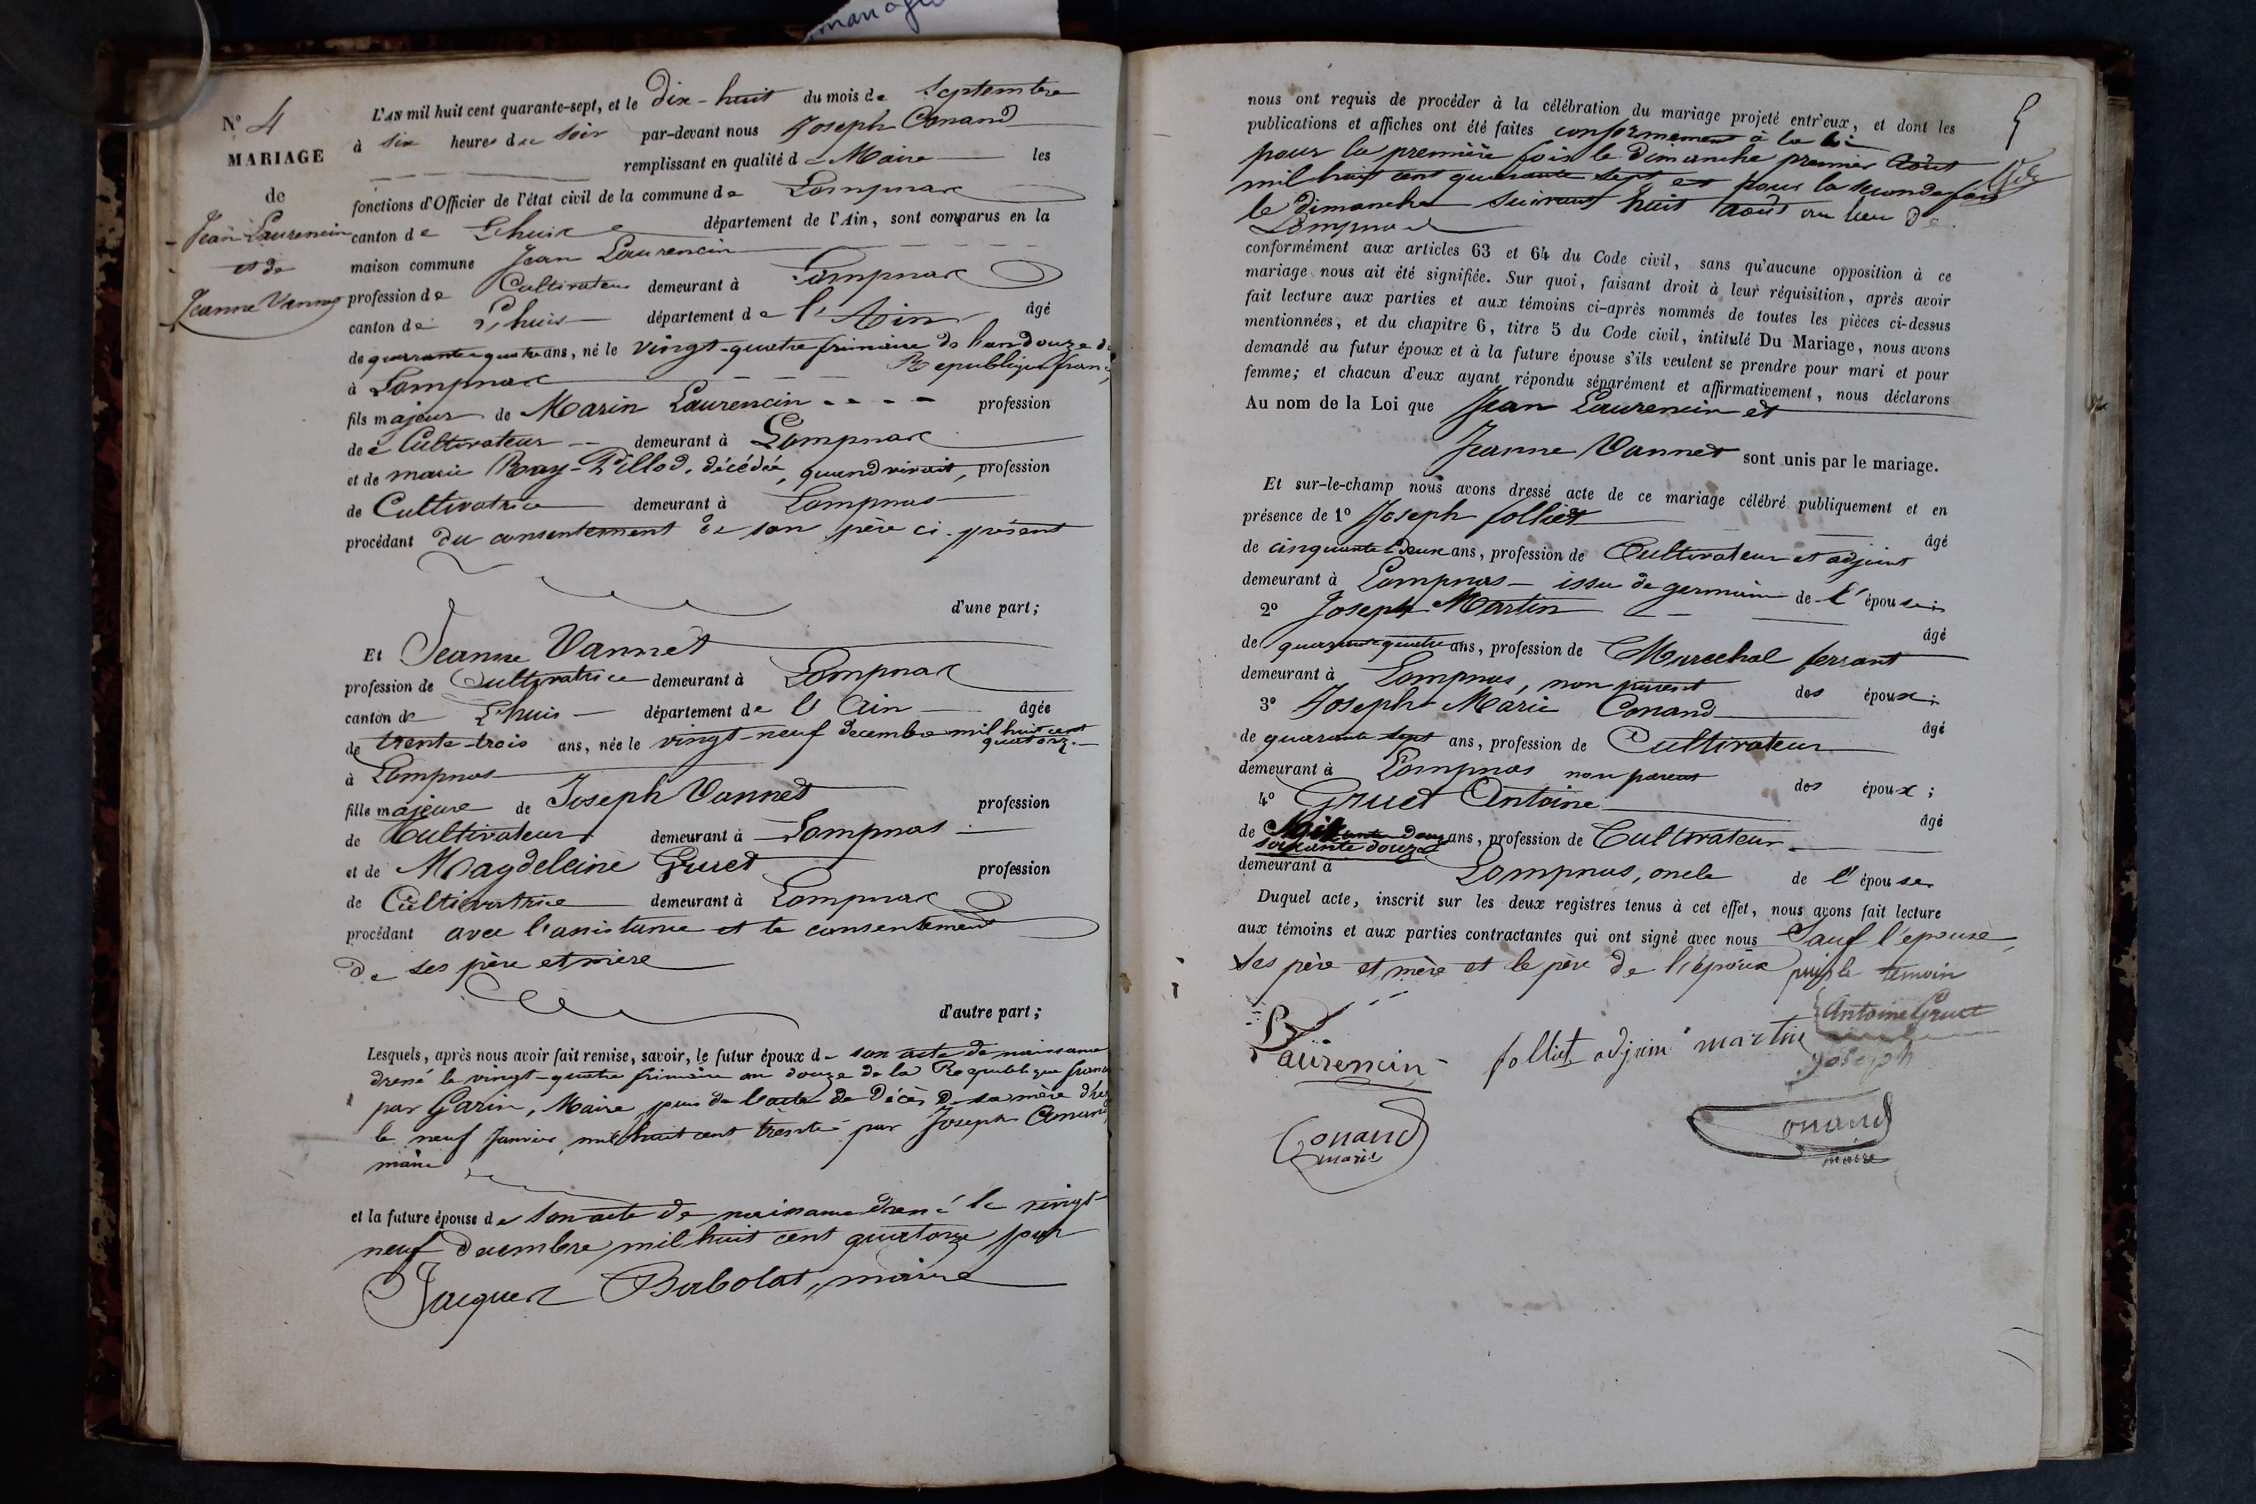 mariage
N° 4
MARIAGE
de
Jean Laurencin
et de
Jeanne Vannet
L'AN mil huit cent quarante-sept, et le dix-huit du mois de Septembre
à six heures du soir par-devant nous Joseph Conand
remplissant en qualité de Maire les
fonctions d'Officier de l'état civil de la commune de Lompnas
canton de Lhuis département de l'Ain, sont comparus en la
maison commune Jean Laurencin
profession de Cultivateur demeurant à Lompnas
canton de Lhuis département de l'Ain âgé
de quarante quatre ans, né le vingt-quatre frimaire de l'an douze de
République franç
à Lompnas
fils majeur de Marin Laurencin profession
de Cultivateur demeurant à Lompnas
et de marie Ray-Pillod, décédée, quand vivait, profession
de Cultivatrice demeurant à Lompnas
procédant du consentement de son père ci-présent
d'une part;
Et Jeanne Vannet
profession de Cultivatrice demeurant à Lompnas
canton de Lhuis département de l'Ain âgée
de trente-trois ans, née le vingt-neuf decembre mil huit cent
quatorze
à Lompnas
fille majeure de Joseph Vannet profession
de Cultivateur demeurant à Lompnas
et de Magdeleine Gruet profession
de Cultivatrice demeurant à Lompnas
procédant avec l'assistance et le consentement
de ses père et mère
d'autre part;
Lesquels, après nous avoir fait remise, savoir, le futur époux de son acte de naissance
dressé le vingt-quatre frimaire an douze de la République franc
par Garin, Maire, puis de l'acte de décès de sa mère
le neuf Janvier mil huit cent trente par Joseph Conand
maire
et la future épouse de son acte de naissance dressé le vingt-
neuf decembre mil huit cent quatorze par
Jacques Babolat, maire
5
nous ont requis de procéder à la célébration du mariage projeté entr'eux, et dont les
publications et affiches ont été faites conformement à la loi
pour la première fois le Dimanche premier Août
mil huit cent quarante sept et pour la seconde fois
le Dimanche suivant huit août au lieu de
Lompnas
conformément aux articles 63 et 64 du Code civil, sans qu'aucune opposition à ce
mariage nous ait été signifiée. Sur quoi, faisant droit à leur réquisition, après avoir
fait lecture aux parties et aux témoins ci-après nommés de toutes les pièces ci-dessus
mentionnées, et du chapitre 6, titre 5 du Code civil, intitulé Du Mariage, nous avons
demandé au futur époux et à la future épouse s'ils veulent se prendre pour mari et pour
femme; et chacun d'eux ayant répondu séparément et affirmativement, nous déclarons
Au nom de la Loi que Jean Laurencin et
Jeanne Vannet sont unis par le mariage.
Et sur-le-champ nous avons dressé acte de ce mariage célébré publiquement et en
présence de 1° Joseph folliet âgé
de cinquante deux ans, profession de Cultivateur et adjoint
demeurant à Lompnas issu de germain de l'épouse;
2° Joseph Martin âgé
de quarante quatre ans, profession de Marechal ferrant
demeurant à Lompnas, non parent des époux;
3° Joseph Marie Conand âgé
de quarante sept ans, profession de Cultivateur
demeurant à Lompnas non parent des époux;
4° Gruet Antoine âgé
de ans, profession de Cultivateur
soixante douze
demeurant à Lompnas, oncle de l'épouse.
Duquel acte, inscrit sur les deux registres tenus à cet effet, nous avons fait lecture
aux témoins et aux parties contractantes qui ont signé avec nous Sauf l'épouse,
ses père et mère et le père de l'époux puis le temoin
Antoine Gruet
Laurencin folliet adjoin martin
joseph
Conand
marie
Conand
maire